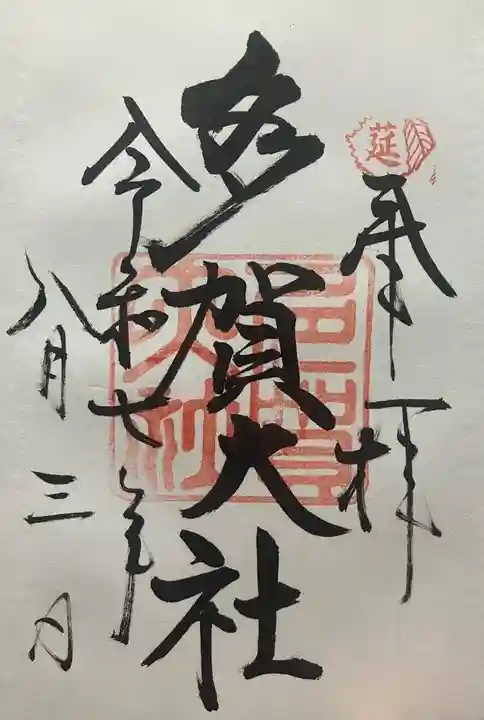 延
奉拝
多賀大社
令和七年
八月三日
多賀大社